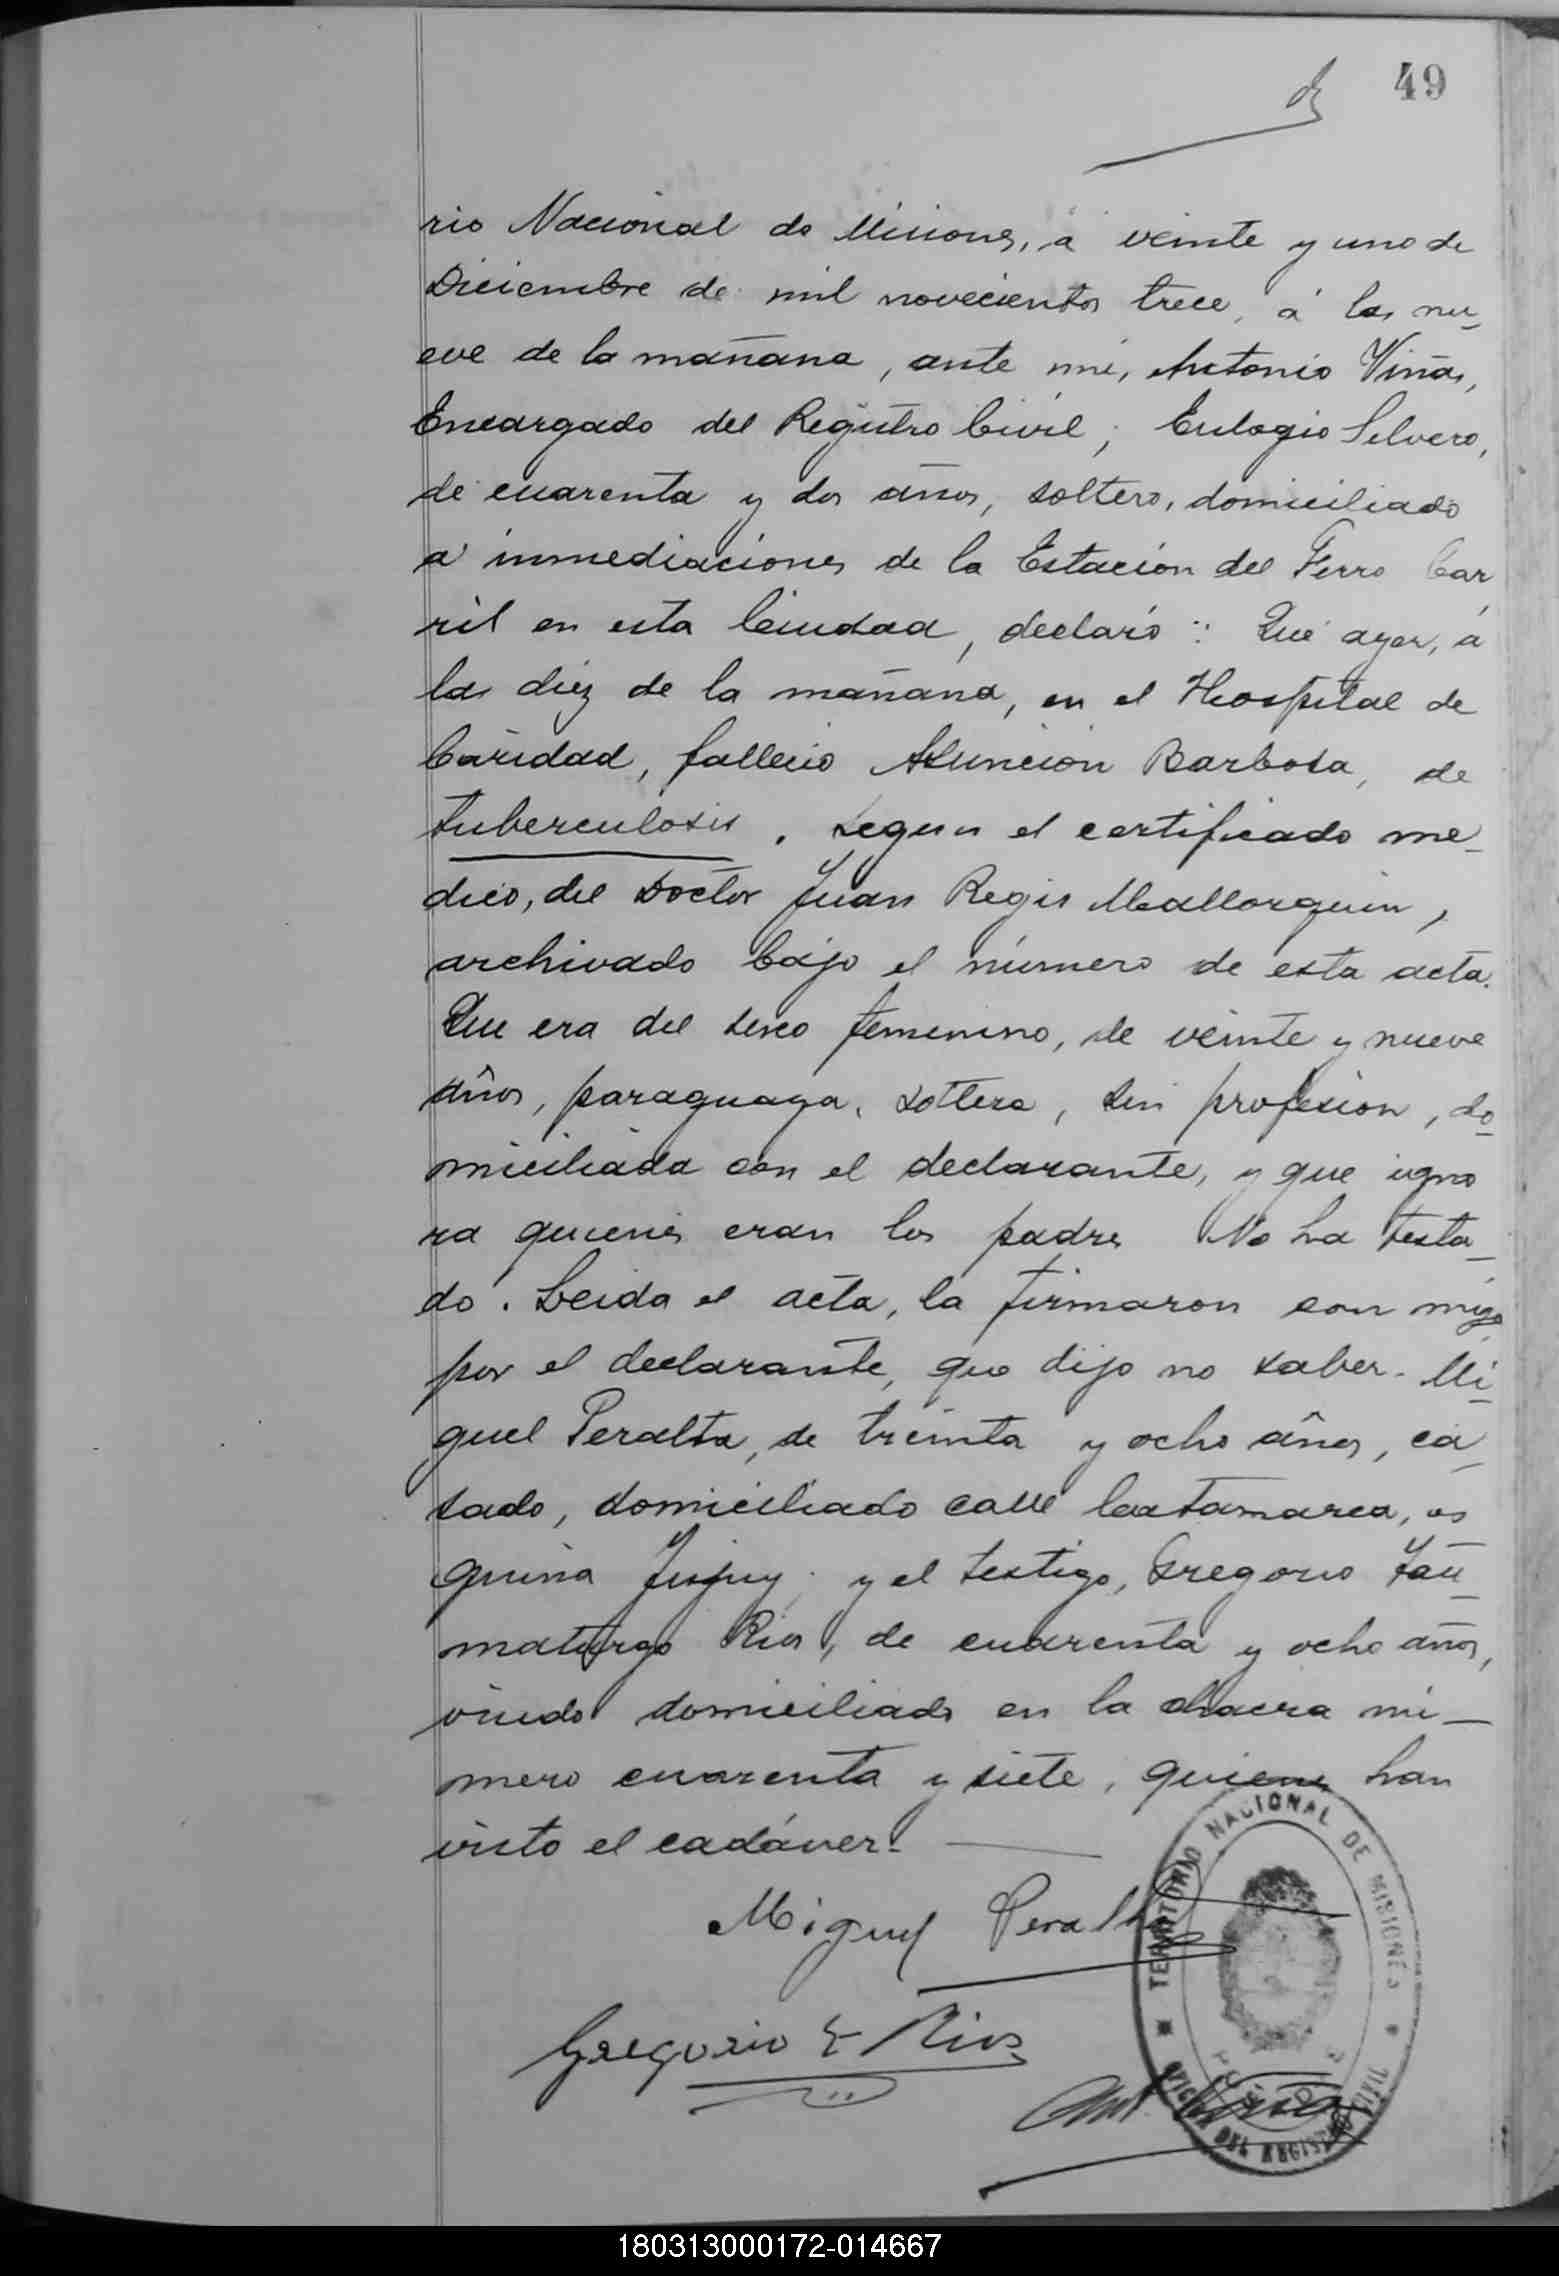 49
rio Nacional de Misiones, á veinte y uno de
Diciembre de mil novecientos trece, á las nu_
eve de la mañana, ante mi, Antonio Viñas,
Encargado del Registro Civil; Eulogio Silvero,
de cuarenta y dos años, soltero, domiciliado
a inmediaciones de la Estación del Ferro Car
ril en esta Ciudad, declaró: Que ayer, á
las diez de la mañana, en el Hospital de
Caridad, falleció Asunción Barbosa, de
tuberculosis, segun el certificado me_
dico, del Doctor Juan Regis Mallorquin,
archivado bajo el número de esta acta.
Que era del sexo femenino, de veinte y nueve
años, paraguaya, soltera, sin profesion, do_
miciliada con el declarante, y que igno
ra quienes eran los padres No ha testa_
do. Leida el acta, la firmaron con migo
por el declarante, que dijo no saber. Mi_
guel Peralta, de treinta y ocho años, ca_
sado, domiciliado calle Catamarca, es
quina Jujuy; y el testigo, Gregorio Tau_
maturgo Rios, de cuarenta y ocho años,
viudo domiciliado en la chacra nú_
mero cuarenta y siete, quienes han
visto el cadáver.
Miguel Peralta
Gregorio T Rios
Ant. Viñas
TERRITORIO NACIONAL DE MISIONES
OFICINA DEL REGISTRO CIVIL
180313000172-014667